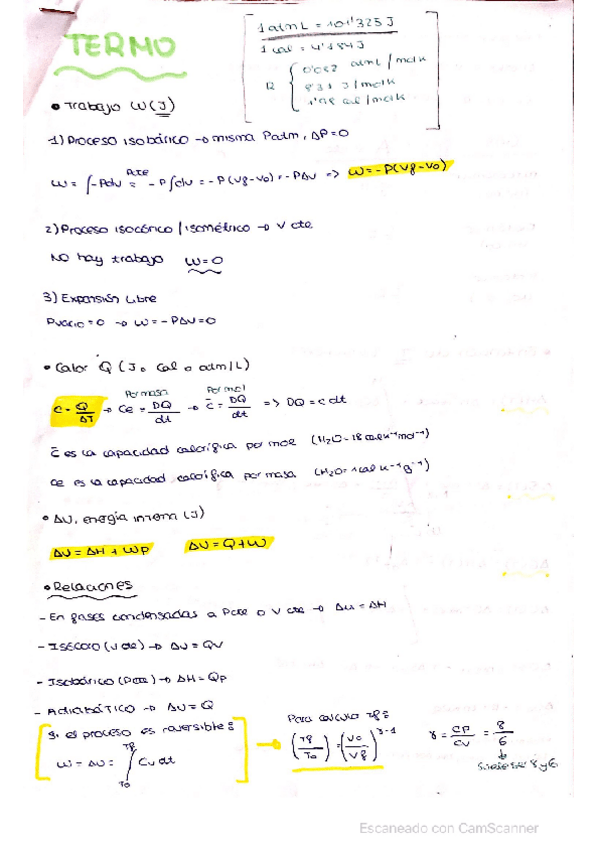 TERMO
1 atm L = 101'325 J
1 cal = 4'184 J
R
0'082 atmL / molK
8'31 J / molK
1'98 cal / molK
• Trabajo W (J)
1) Proceso isobárico → misma Patm, ΔP=0
W = ∫-Pdv = -P∫dv = -P(Vf-Vo) = -PΔV => W=-P(Vf-Vo)
Pcte
2) Proceso isocórico / isométrico → V cte
NO hay trabajo W=0
3) Expansión Libre
Pvacio = 0 → W = -PΔV=0
• Calor Q (J o cal o atm/L)
Por masa
Por mol
C = Q/ΔT → Ce = DQ/dt → c̄ = DQ/dt => DQ = c dt
c̄ es la capacidad calorífica por mol (H2O = 18 cal K⁻¹mol⁻¹)
Ce es la capacidad calorífica por masa (H2O = 1 cal K⁻¹g⁻¹)
• ΔU, energía interna (J)
ΔU = ΔH + Wp ΔU = Q+W
• Relaciones
- En fases condensadas a Pcte o V cte → ΔU = ΔH
- Isócoro (V cte) → ΔU = QV
- Isobárico (Pcte) → ΔH = Qp
- ADIABÁTICO → ΔU = Q
Si el proceso es reversible:
W = ΔU = ∫ Cv dt
Tf
To
Para calcular Tf:
(Tf/To) = (Vo/Vf)^γ-1
γ = CP/CV = 8/6
Suele ser 8 y 6
Escaneado con CamScanner